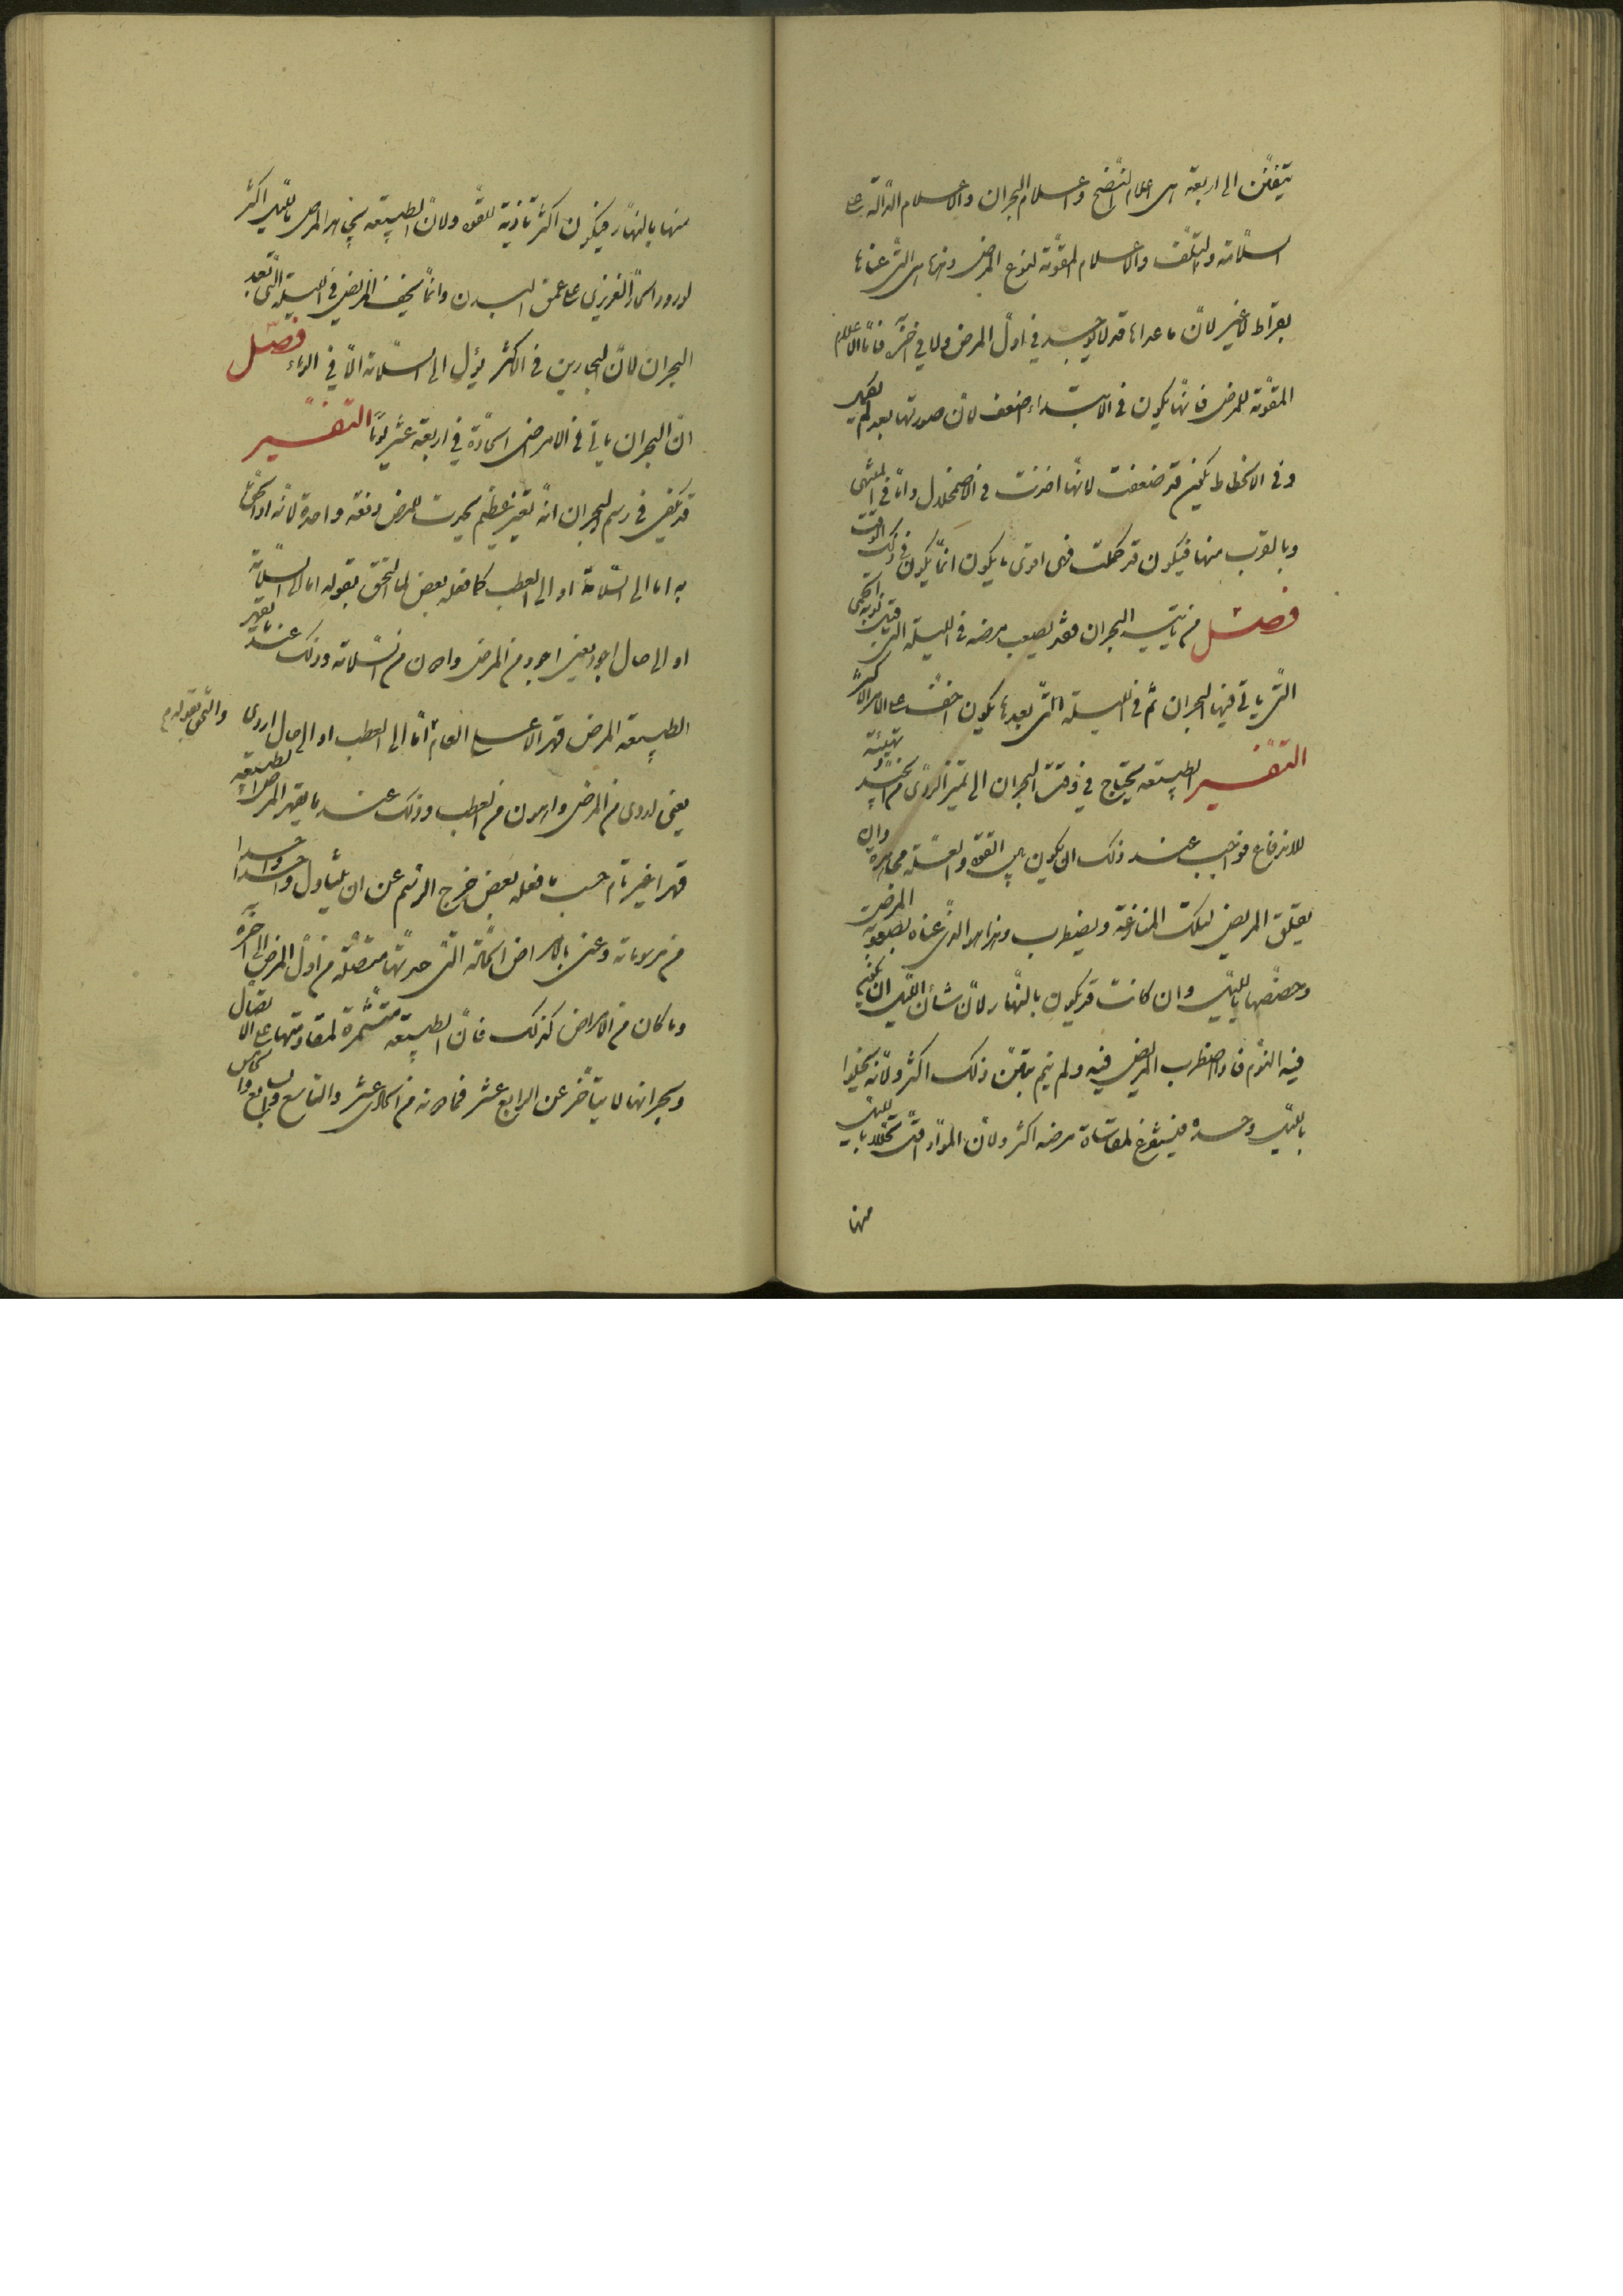 يتفنن الى اربعة هى اعلام النضج واعلام البحران والاعلام الدالة على
السلامة والتلف والاعلام المقومة لنوع المرض وهذه هى التى عناها
بقراط لا غير لان ما عداها قد لا يوجد فى اول المرض ولا فى اخره فاما الاعلام
المقومة للمرض فانها يكون فى الابتداء اضعف لان صورتها بعد لم يكمل
وفى الانحطاط يكون قد ضعفت لانها اخذت فى الاضمحلال واما فى المنتهى
وبالقرب منها فيكون قد كملت فهى اقوى ما يكون انما يكون فى ذلك الوقت
فصل من ياتيه البحران فقد يصعب مرضه فى الليلة التى قبل نوبة الحمى
التى ياتى فيها البحران ثم فى الليلة التى بعدها يكون اخف على الامر الاكثر
التفسير الطبيعة يحتاج فى وقت البحران الى تمييز الردى من الجيد وتهيئة
للاندفاع فواجب عند ذلك ان يكون بين القوة والعلة مجاهدة وان
يقلق المريض لتلك المنازعة ويضطرب وهذا هو الذى عناه بصعوبة المرض
وخصها بالليل وان كانت قد يكون بالنهار لان شأن الليل ان يكون
فيه النوم فاذا اضطرب المريض فيه ولم ينم تبين ذلك اكثر ولانه يخلوا
بالليل وحده فيتفرغ لمقاساة مرضه اكثر ولان المواد اقل تحللا بالليل
منها
منها بالنهار فيكون اكثر تاذية للقوة ولان الطبيعة يجاهد المرض بالليل اكثر
لورود الحار الغريزى على عمق البدن وانما يخف المريض فى الليلة التى بعد
البحران لان البحارين فى الاكثر يؤل الى السلامة الا فى الوباء فصل
ان البحران ياتى فى الامراض الحادة فى اربعة عشر يوما التفسير
قد يكفى فى رسم البحران انه تغير عظيم يحدث للمرض دفعة واحدة لانه اذا الحق
به اما الى السلامة او الى العطب كما فعله بعض لما الحق بقوله اما الى السلامة
او الى حال اجود يعنى اجود من المرض وادون من السلامة وذلك عند ما يقهر
الطبيعة المرض قهرا لا على التمام اما الى العطب او الى حال اردى والحق بقوله
يعنى اردى من المرض وادون من العطب وذلك عند ما يقهر المرض الطبيعة
قهرا غير تام حسب ما فعله بعض خرج الرسم عن ان يتناول واحدا واحدا
من مرسوماته وعنى بالامراض الحادة التى حدتها متصلة من اول المرض الى اخره
وما كان من الامراض كذلك فان الطبيعة متشمرة لمقاومتها على الاتصال
وبحرانها لا يتأخر عن الرابع عشر فما دونه من الحادى عشر والتاسع والسابع والخامس